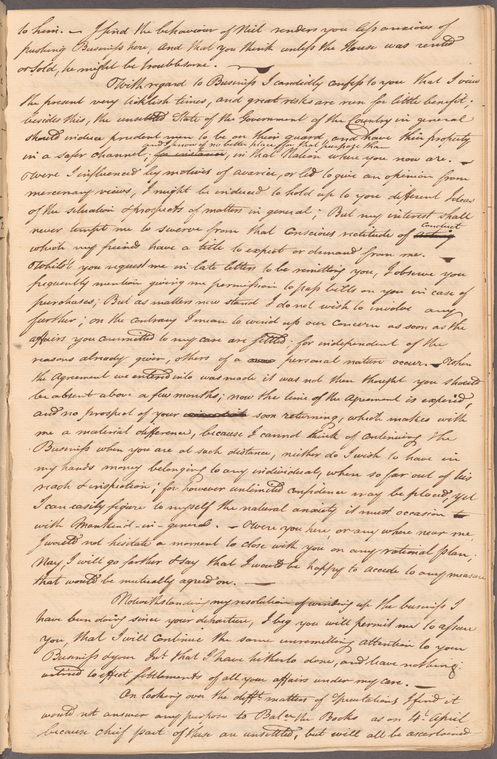 to him. — I find the behaviour of Neil renders you less anxious of
pushing Business here, and that you think unless the House was rented
or Sold, he might be troublesome. —
With regard to Business I candidly confess to you that I view
the present very ticklish times, and great risks are run for little benefit;
besides this, the unsettled State of the Government of the Country in general
should induce prudent men to be on their guard, and have their property
and I know of no better place for that purpose than
in a safer channel; for instance, in that Nation where you now are. —
Were I influenced by motives of avarice, or led to give an opinion from
mercenary views, I might be induced to hold up to you different Ideas
of the situation & prospects of matters in general; But my interest shall
never tempt me to swerve from that conscious rectitude of
Conduct
which my friend have a title to expect or demand from me. —
Whilst you request me in late letters to be remitting you, I observe you
frequently mention giving me permission to pass bills on you in case of
purchases; But as matters now stand I do not wish to involve any
further; on the contrary I mean to wind up our concern as soon as the
affairs you committed to my care are settled: for independent of the
reasons already given, others of a personal nature occur. — When
the Agreement we entered into was made it was not then thought you should
be absent above a few months; now the time of the Agreement is expired,
and no prospect of your soon returning, which makes with
me a material difference, because I cannot think of continuing the
Business when you are at such distance, neither do I wish to have in
my hands money belonging to any individual, when so far out of his
reach & inspection; for however unlimited confidence may be placed, yet
I can easily figure to myself the natural anxiety it must occasion
with Mankind-in-general. — Were you here, or any where near me
I would not hesitate a moment to close with you on any rational plan;
Nay, I will go farther & say that I would be happy to accede to any measure
that would be mutually agreed on. —
Notwithstanding my resolution of winding up the business I
have been doing since your departure, I beg you will permit me to assure
you, that I will continue the same unremitting attention to your
Business & your Int. that I have hitherto done, and leave nothing
untried to effect settlements of all your affairs under my care. —
On looking over the difft. matters of Speculations I find it
would not answer any purpose to Balce the Books as on 4t. April
because chief part of these are unsettled, but will all be ascertained